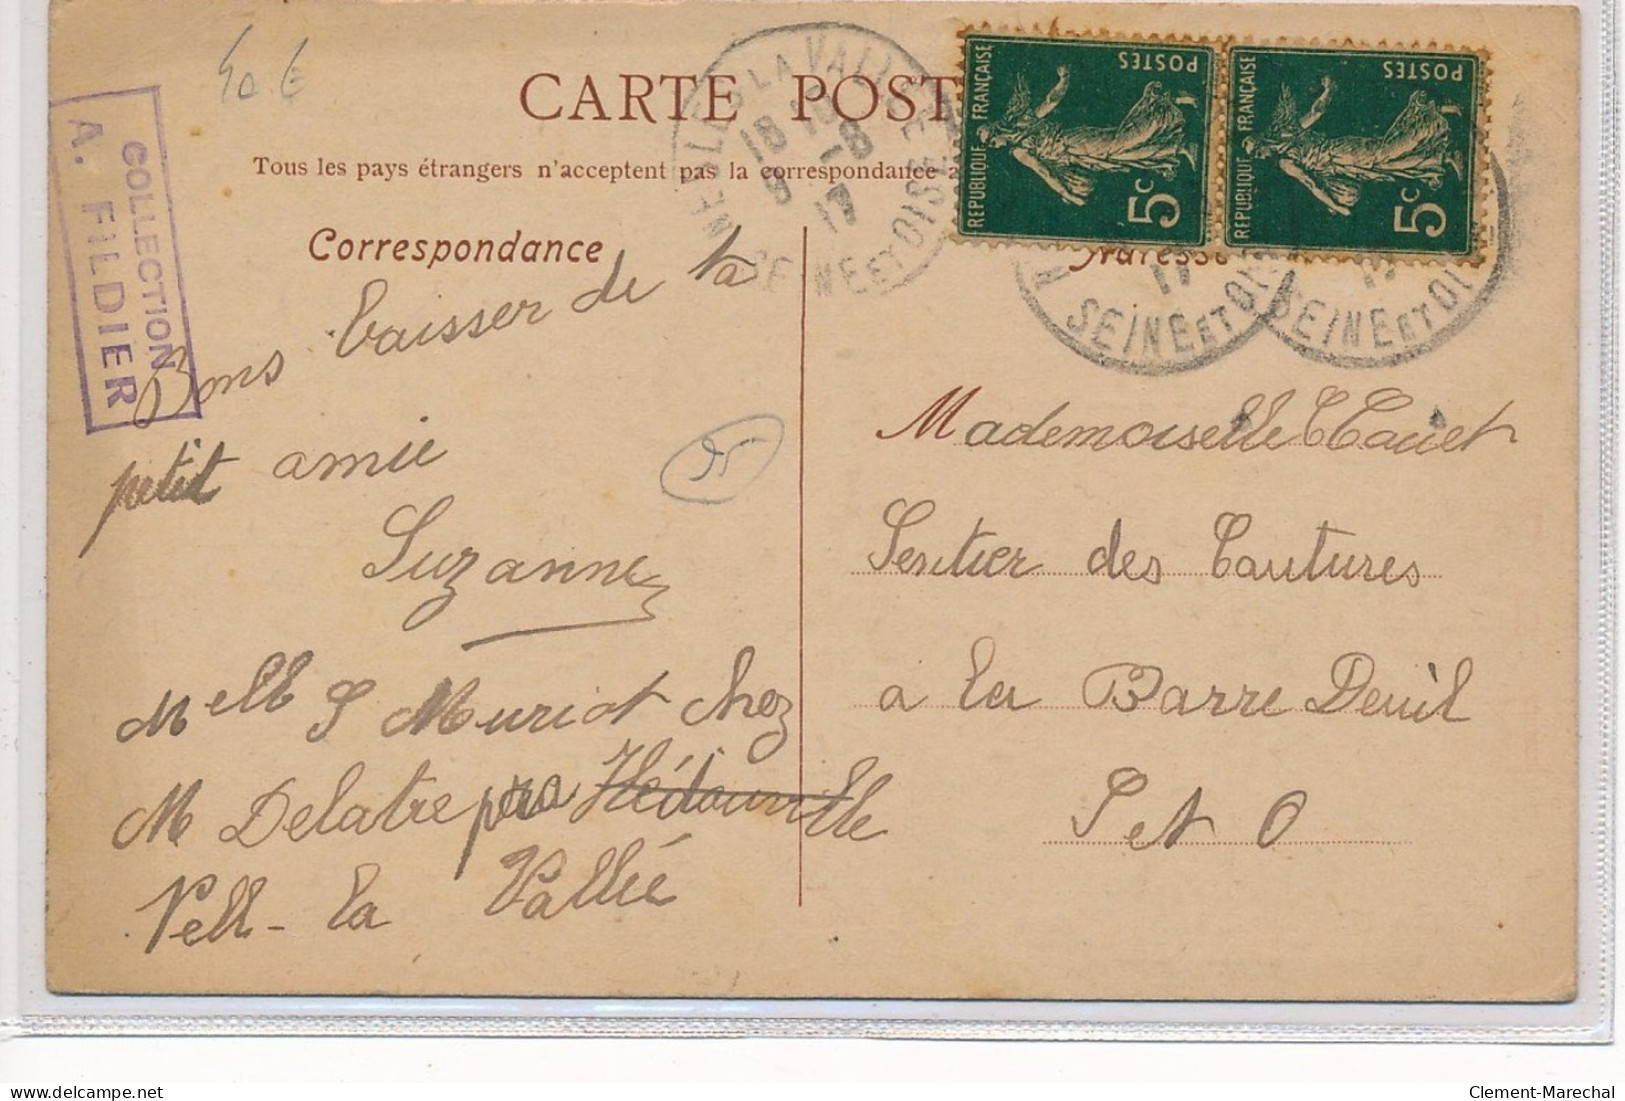 40 €
COLLECTION
A. FILDIER
CARTE POST
Tous les pays étrangers n'acceptent pas la correspondance a
Correspondance
Adresse
NESLES LA VALLEE
18
-8
17
SEINE ET OISE
REPUBLIQUE FRANÇAISE
POSTES
5c
REPUBLIQUE FRANÇAISE
POSTES
5c
17
SEINE ET OI
SEINE ET OI
Bons baisser de ta
petit amie
Suzanne
95
Melle S Muriot chez
M Delatre Hédouville
Nell-la Vallée
Mademoiselle
Sentier des Coutures
a la Barre Deuil
S et O
delcampe.net
Clement-Marechal